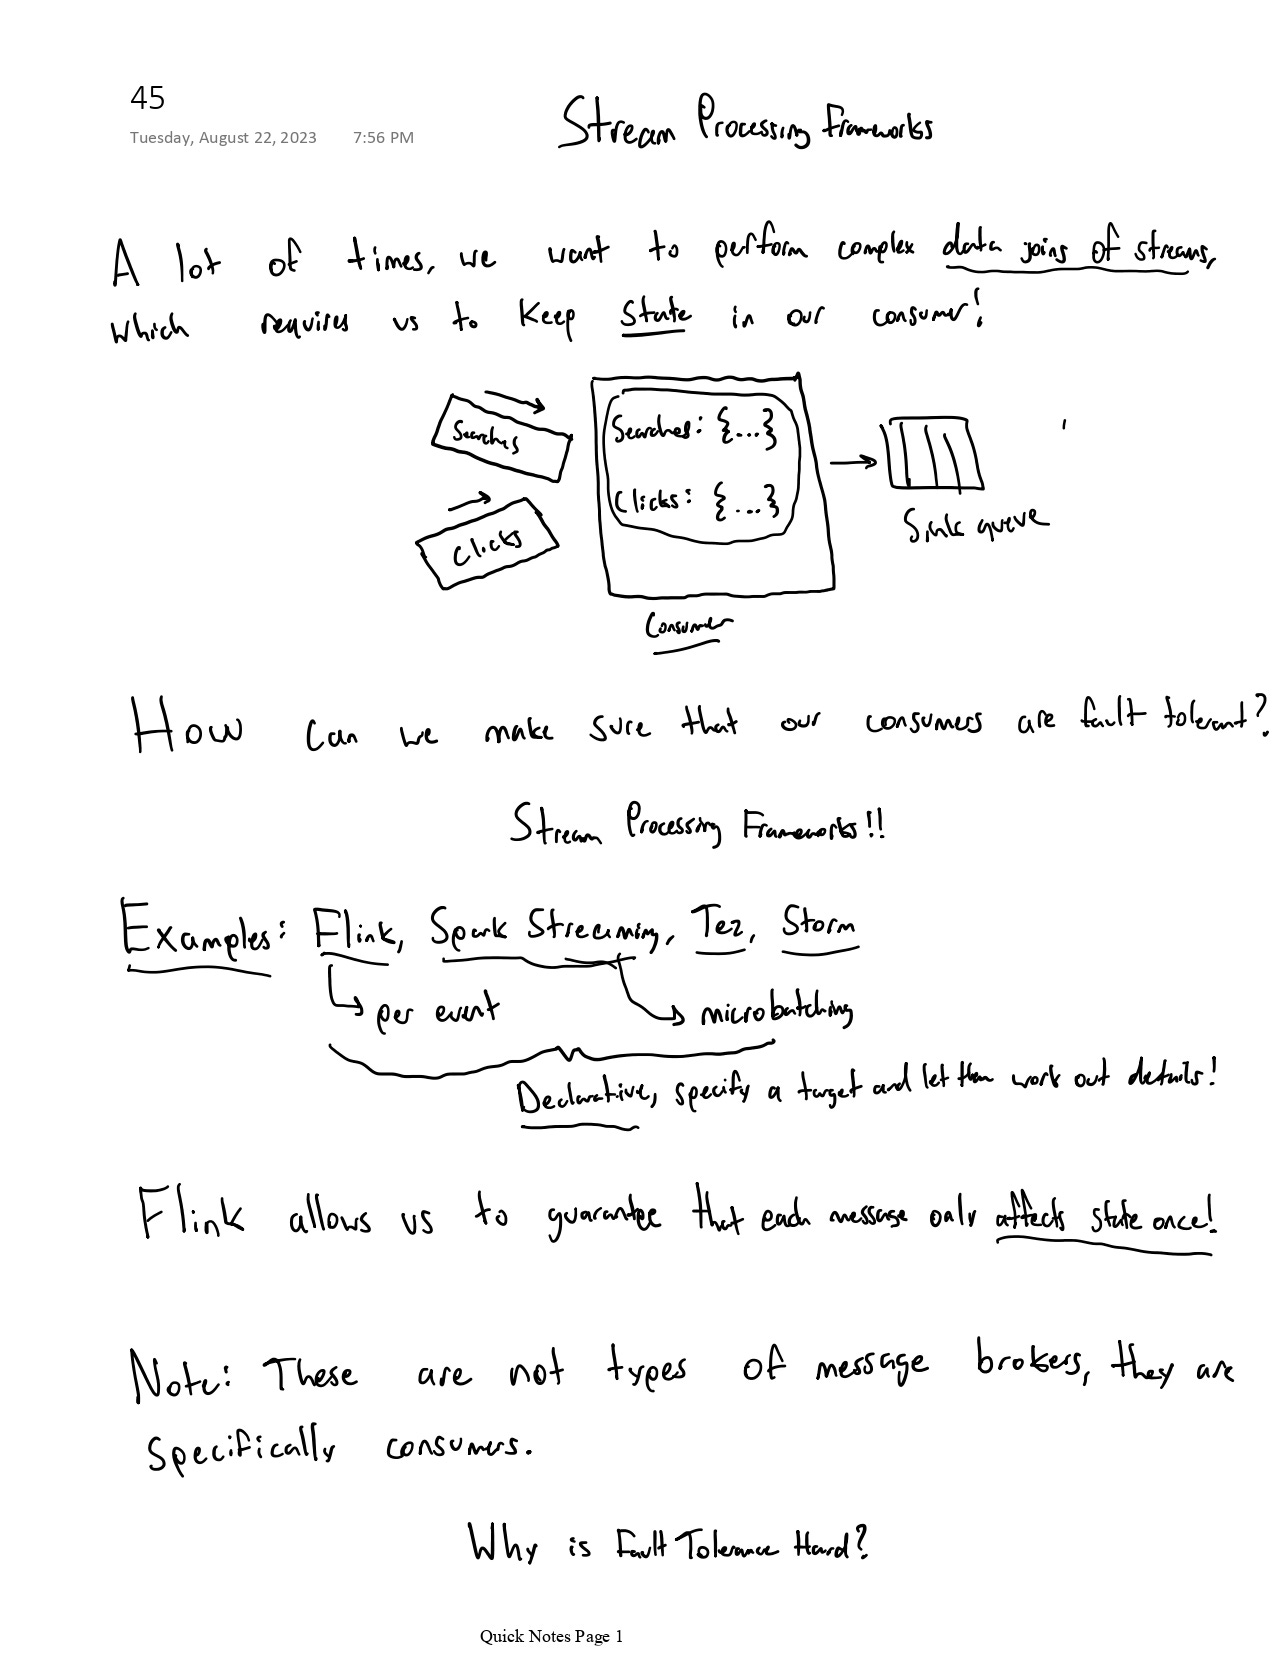 45
Tuesday, August 22, 2023 7:56 PM
Stream Processing Frameworks
A lot of times, we want to perform complex data joins of streams,
which requires us to keep state in our consumer!
Searches
Searches: {...}
Clicks
Clicks: {...}
Sink queue
Consumer
How can we make sure that our consumers are fault tolerant?
Stream Processing Frameworks!!
Examples: Flink, Spark Streaming, Tez, Storm
per event
microbatching
Declarative, specify a target and let them work out details!
Flink allows us to guarantee that each message only affects state once!
Note: These are not types of message brokers, they are
specifically consumers.
Why is Fault Tolerance Hard?
Quick Notes Page 1